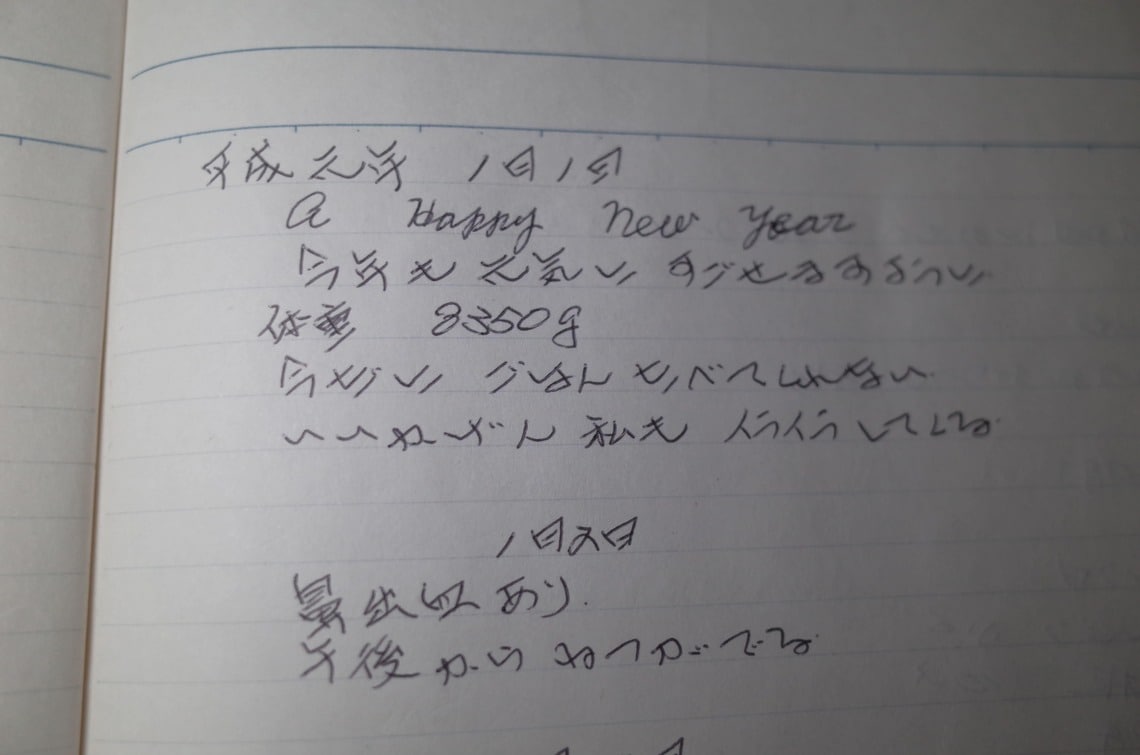 平成元年 1月1日
A Happy New Year
今年も元気に すごせますように
体重 8350g
今だに ごはん たべてくれない
いいかげん 私も イライラしてくる
1月2日
鼻出血 あり.
午後から ねつがでる